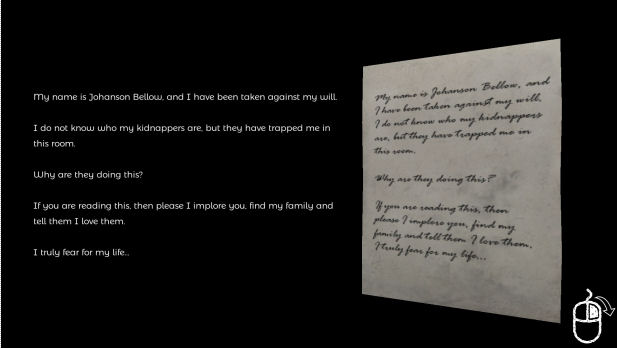 My name is Johanson Bellow, and I have been taken against my will.
I do not know who my kidnappers are, but they have trapped me in
this room.
Why are they doing this?
If you are reading this, then please I implore you, find my family and
tell them I love them.
I truly fear for my life...
My name is Johanson Bellow, and
I have been taken against my will.
I do not know who my kidnappers
are, but they have trapped me in
this room.
Why are they doing this?
If you are reading this, then
please I implore you, find my
family and tell them I love them.
I truly fear for my life...